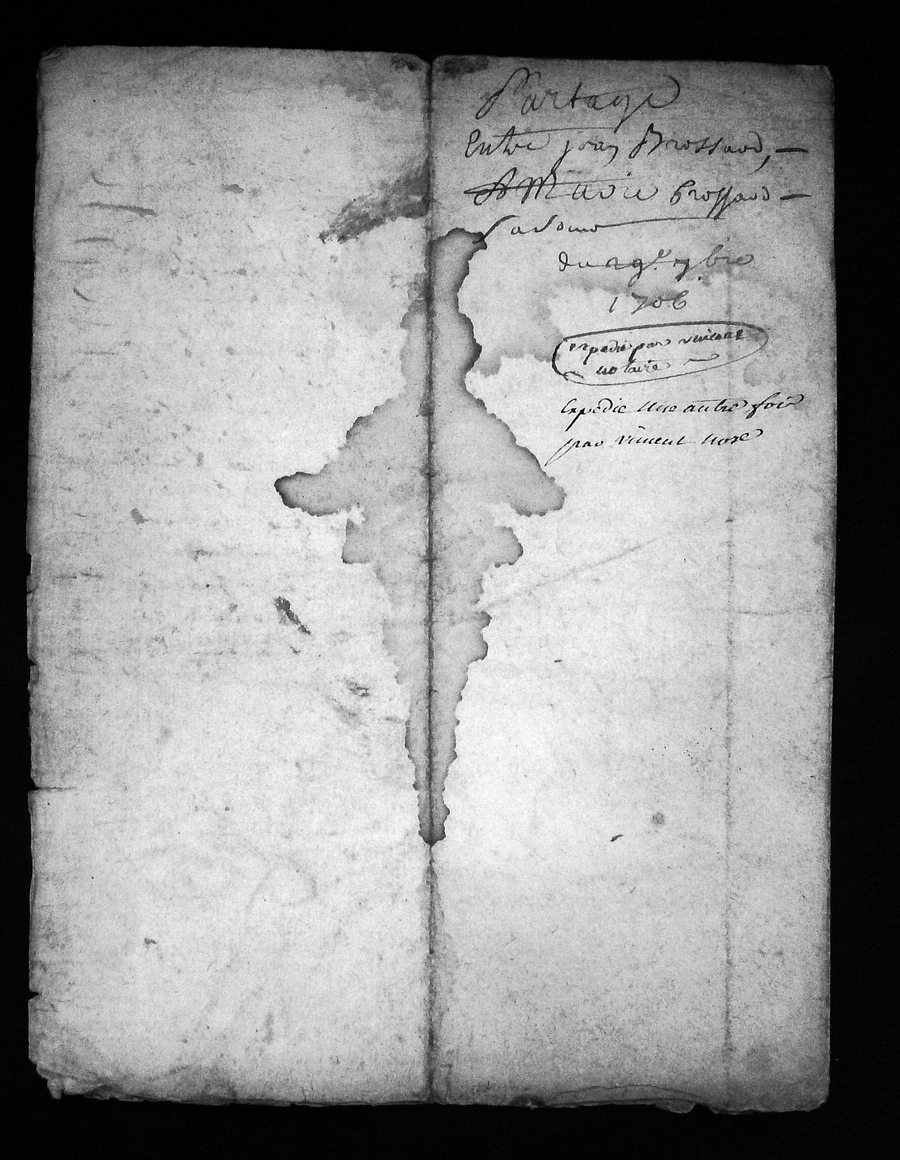 Partage
Entre jean Brossard,
& Marie brossard
du 29e 7bre
1706
expedié par vincent
notaire
Expedie une autre fois
par vincent nore